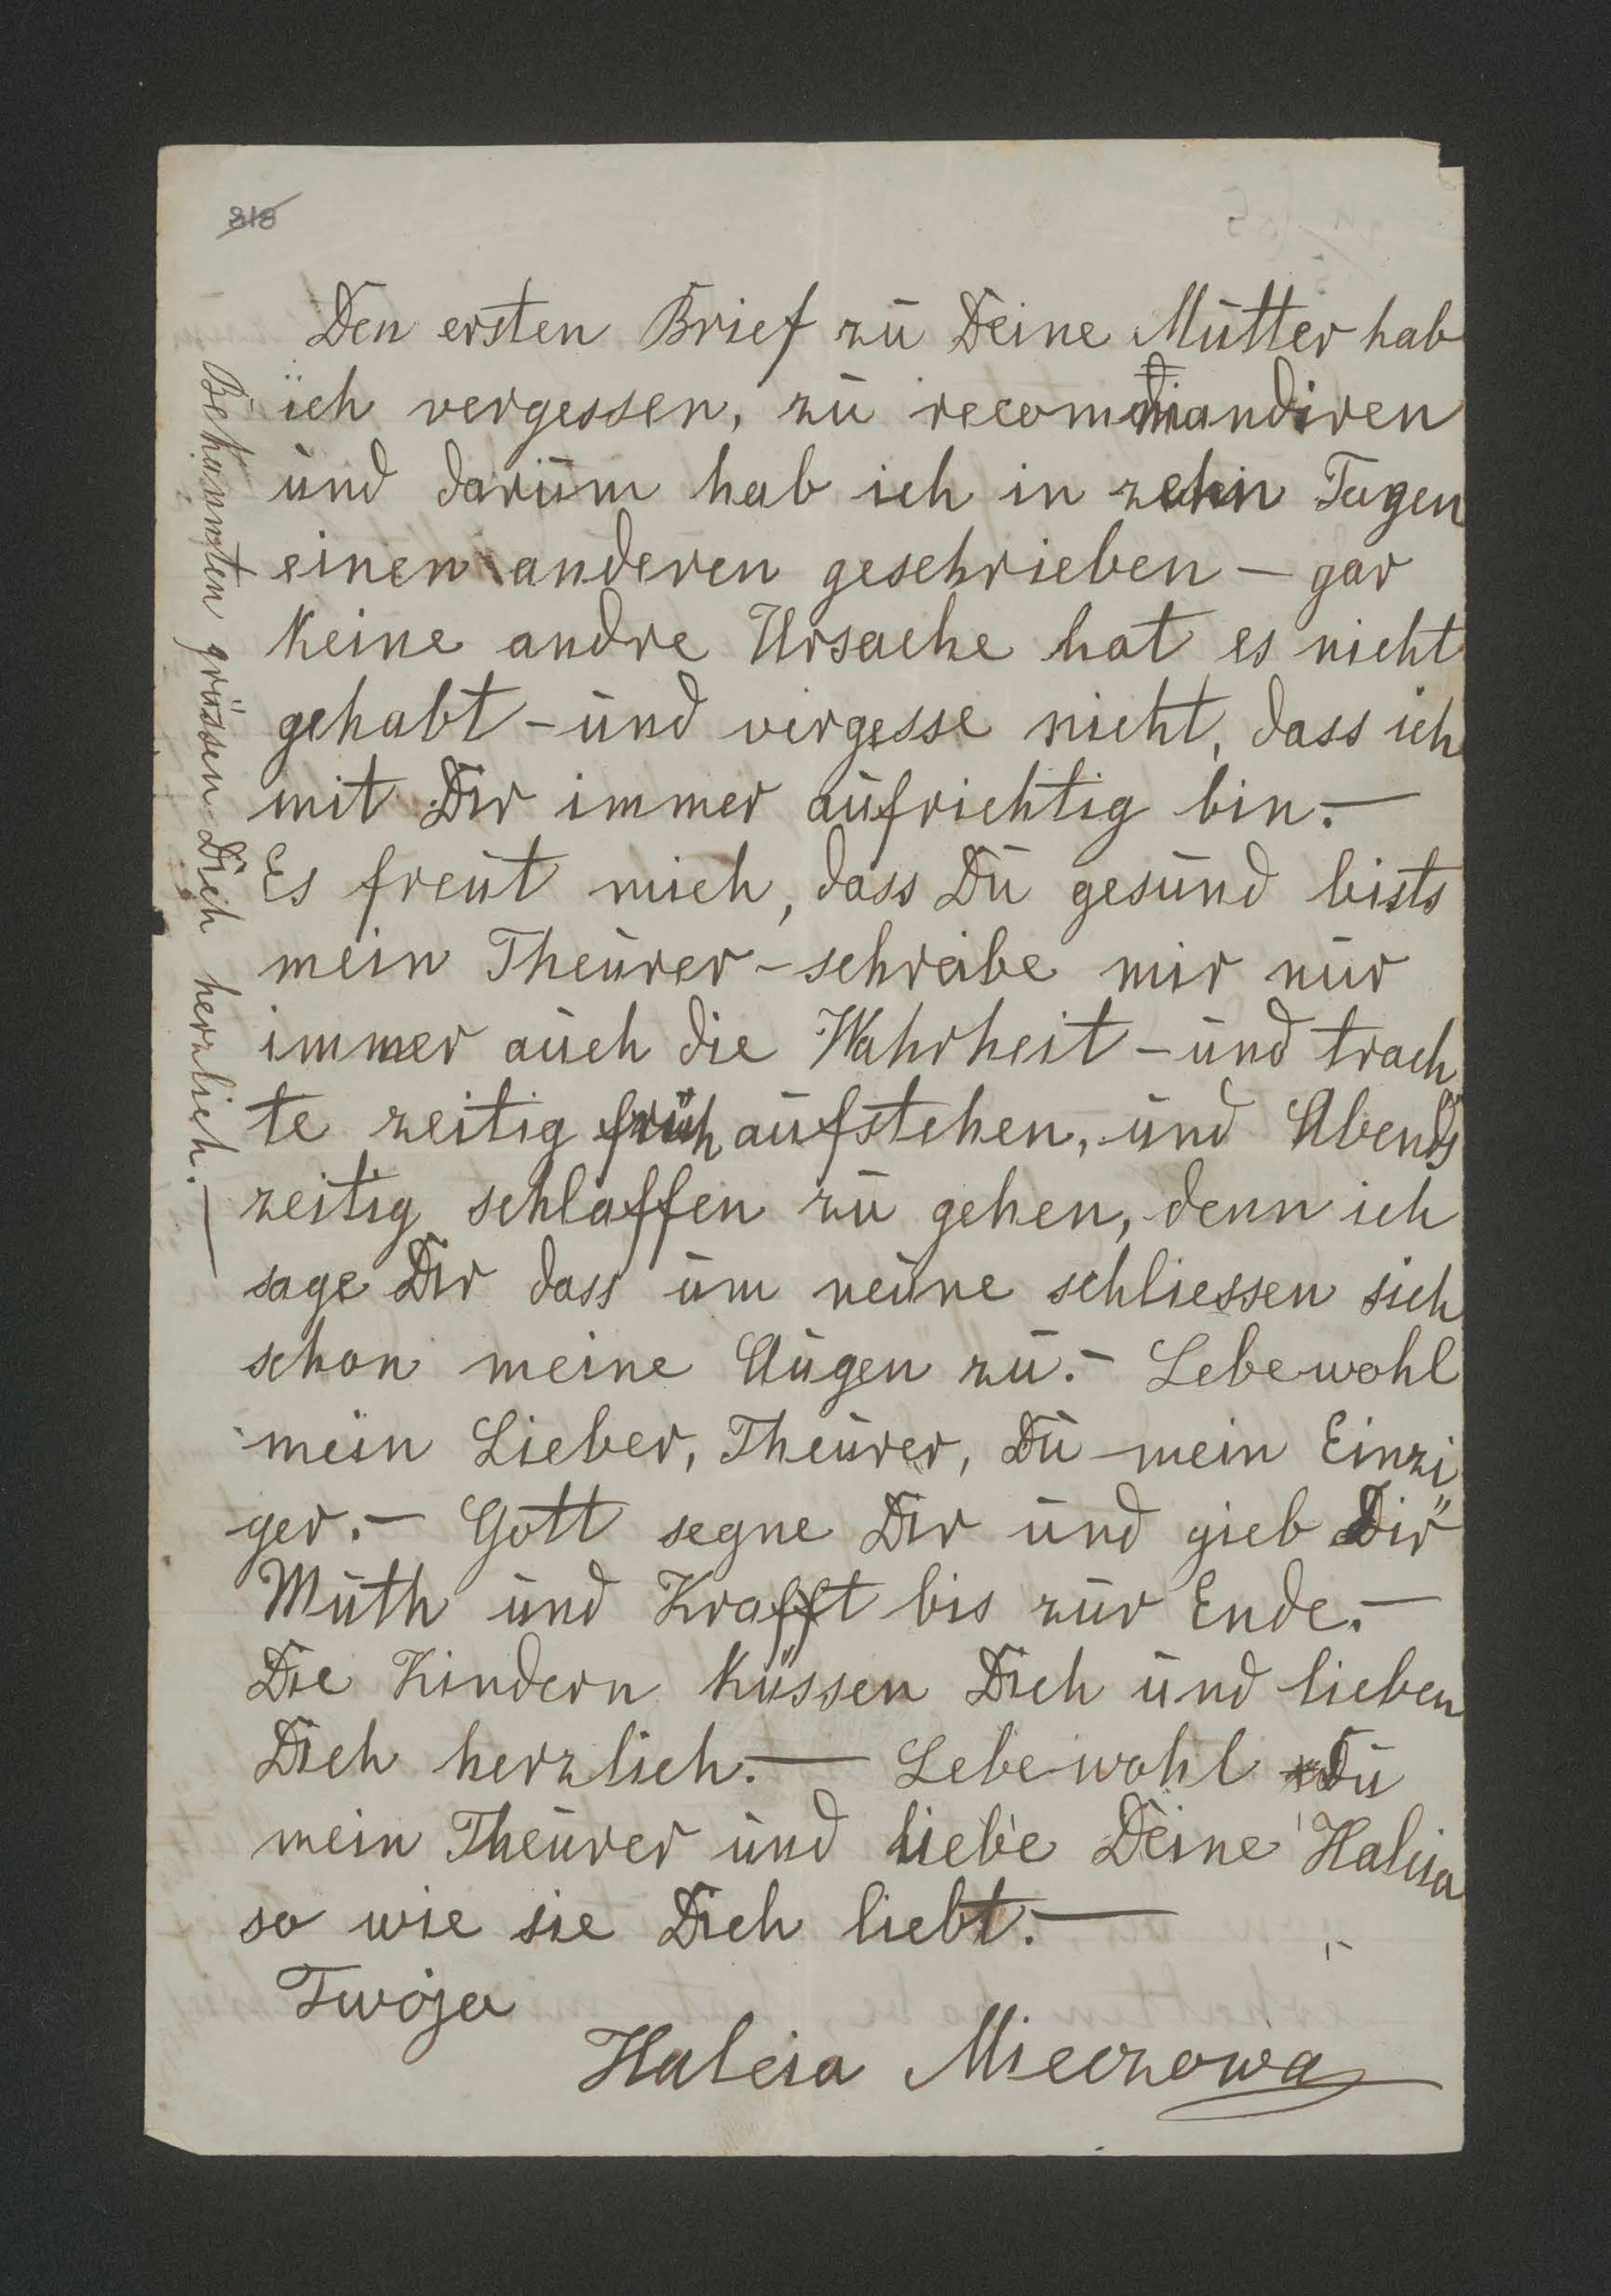 318
Den ersten Brief zu Deine Mutter hab
ich vergessen, zu recommandiren
und darum hab ich in zehn Tagen
einen anderen geschrieben – gar
keine andre Ursache hat es nicht
gehabt – und vergesse nicht, dass ich
mit Dir immer aufrichtig bin. –
Es freut mich, dass Du gesund bists
mein Theurer – schreibe mir nur
immer auch die Wahrheit – und trach
te zeitig früh aufstehen, und Abends
zeitig schlaffen zu gehen, denn ich
sage Dir dass um neune schliessen sich
schon meine Augen zu. – Lebewohl
mein Lieber, Theurer, Du mein Einzi
ger. – Gott segne Dir und gieb Dir
Muth und Krafft bis zur Ende. –
Die Kindern küssen Dich und lieben
Dich herzlich. — Lebewohl Du
mein Theurer und liebe Deine Halcia
so wie sie Dich liebt. —
Twója
Halcia Mieczowa
Bekannten grüssen Dich herzlich. —